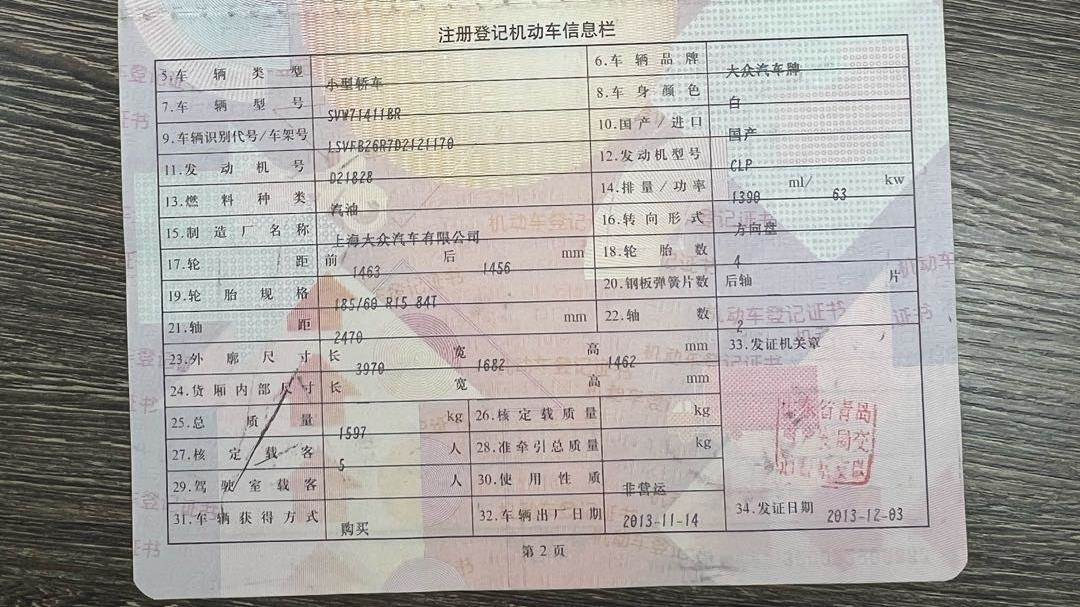 注册登记机动车信息栏
5.车辆类型 小型轿车 6.车辆品牌 大众汽车牌
7.车辆型号 SVW71411BR 8.车身颜色 白
9.车辆识别代号/车架号 LSVFB26R7D2121170 10.国产/进口 国产
11.发动机号 D21828 12.发动机型号 CLP
13.燃料种类 汽油 14.排量/功率 1390 ml/ 63 kw
15.制造厂名称 上海大众汽车有限公司 16.转向形式 方向盘
17.轮距 前 1463 后 1456 mm 18.轮胎数 4
19.轮胎规格 185/60 R15 84T 20.钢板弹簧片数 后轴 片
21.轴距 2470 mm 22.轴数 2
23.外廓尺寸 长 3970 宽 1682 高 1462 mm 33.发证机关章
24.货厢内部尺寸 长 宽 高 mm
25.总质量 1597 kg 26.核定载质量 kg
27.核定载客 5 人 28.准牵引总质量 kg
29.驾驶室载客 人 30.使用性质 非营运
31.车辆获得方式 购买 32.车辆出厂日期 2013-11-14 34.发证日期 2013-12-03
第2页